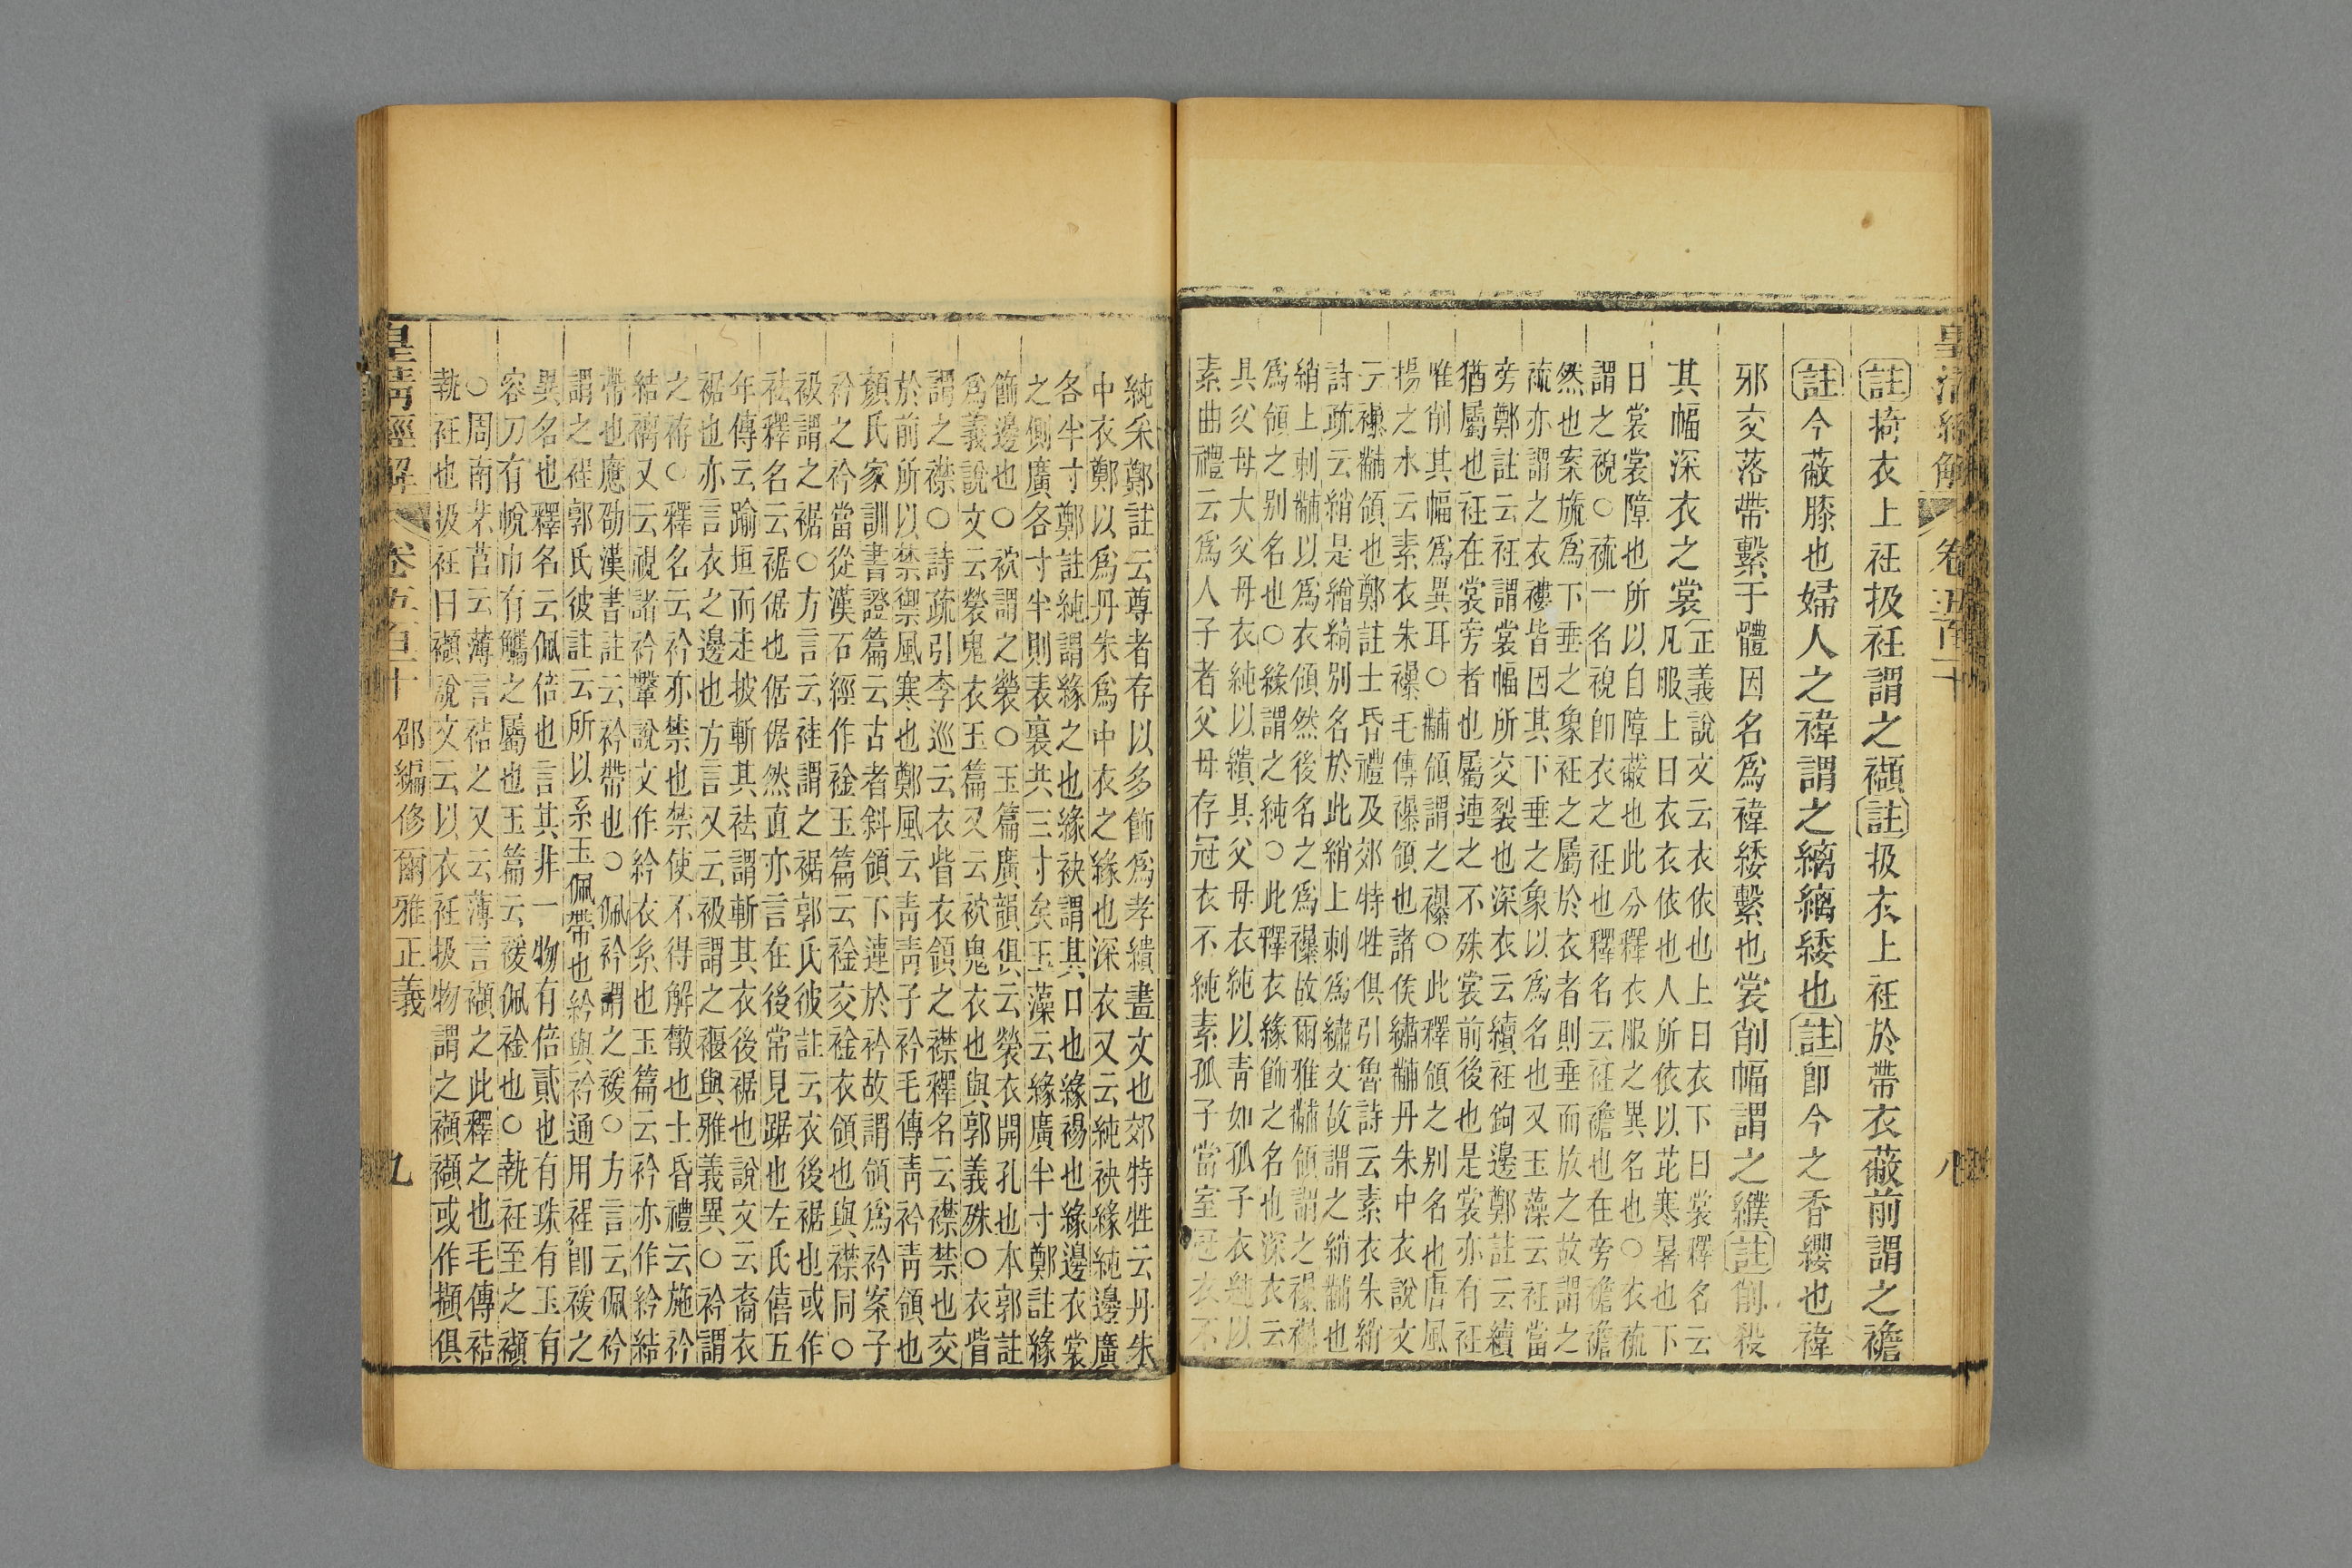 皇清經解 卷五百十 八
註掎衣上衽扱衽謂之襭註扱衣上衽於帶衣蔽前謂之襜
註今蔽膝也婦人之褘謂之縭縭緌也註即今之香纓也褘
邪交落帶繫于體因名爲褘緌繫也裳削幅謂之纀註削殺
其幅深衣之裳
正義說文云衣依也上曰衣下曰裳釋名云
凡服上曰衣衣依也人所依以芘寒暑也下
曰裳裳障也所以自障蔽也此分釋衣服之異名也○衣裗
謂之祝○裗一名祝卽衣之衽也釋名云衽襜也在旁襜襜
然也案旒爲下垂之象衽之屬於衣者則垂而放之故謂之
裗亦謂之衣褸皆因其下垂之象以爲名也又玉藻云衽當
旁鄭註云衽謂裳幅所交裂也深衣云續衽鉤邊鄭註云續
猶屬也衽在裳旁者也屬連之不殊裳前後也是裳亦有衽
唯削其幅爲異耳○黼領謂之襮○此釋領之别名也唐風
揚之水云素衣朱襮毛傳襮領也諸侯繡黼丹朱中衣說文
云襮黼領也鄭註士昏禮及郊特牲俱引魯詩云素衣朱綃
詩疏云綃是繒綺别名於此綃上刺爲繡文故謂之綃黼也
綃上刺黼以爲衣領然後名之爲襮故爾雅黼領謂之襮襮
爲領之别名也○緣謂之純○此釋衣緣飾之名也深衣云
具父母大父母衣純以繢具父母衣純以青如孤子衣純以
素曲禮云爲人子者父母存冠衣不純素孤子當室冠衣不
純采鄭註云尊者存以多飾爲孝繢畫文也郊特牲云丹朱
中衣鄭以爲丹朱爲中衣之緣也深衣又云純袂緣純邊廣
各半寸鄭註純謂緣之也緣袂謂其口也緣裼也緣邊衣裳
之側廣各寸半則表裏共三寸矣玉藻云緣廣半寸鄭註緣
飾邊也○袕謂之褮○玉篇廣韻俱云褮衣開孔也本郭註
爲義說文云褮鬼衣玉篇又云袕鬼衣也與郭義殊○衣眥
謂之襟○詩疏引李巡云衣眥衣領之襟釋名云襟禁也交
於前所以禁禦風寒也鄭風云青青子衿毛傳青衿青領也
顏氏家訓書證篇云古者斜領下連於衿故謂領爲衿案子
衿之衿當從漢石經作裣玉篇云裣交裣衣領也與襟同○
衱謂之裾○方言云袿謂之裾郭氏彼註云衣後裾也或作
袪釋名云裾倨也倨倨然直亦言在後常見踞也左氏僖五
年傳云踰垣而走披斬其袪謂斬其衣後裾也說文云裔衣
裾也亦言衣之邊也方言又云衱謂之褗與雅義異○衿謂
之袸○釋名云衿亦禁也禁使不得解散也士昏禮云施衿
結褵又云視諸衿鞶說文作紟衣系也玉篇云衿亦作紟結
帶也應劭漢書註云衿帶也○佩衿謂之褑○方言云佩衿
謂之裎郭氏彼註云所以系玉佩帶也紟與衿通用裎卽褑之
異名也釋名云佩倍也言其非一物有倍貳也有珠有玉有
容刀有帨巾有觿之屬也玉篇云褑佩裣也○執衽至之襭
○周南芣苢云薄言袺之又云薄言襭之此釋之也毛傳袺
執衽也扱衽曰襭說文云以衣衽扱物謂之襭襭或作擷俱
皇清經解 卷五百十 邵編修爾雅正義 九